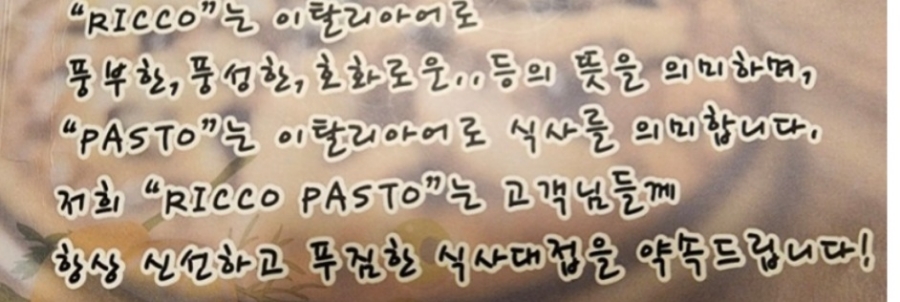 “RICCO”는 이탈리아어로
풍부한, 풍성한, 호화로운.. 등의 뜻을 의미하며,
“PASTO”는 이탈리아어로 식사를 의미합니다.
저희 “RICCO PASTO”는 고객님들께
항상 신선하고 푸짐한 식사대접을 약속드립니다!